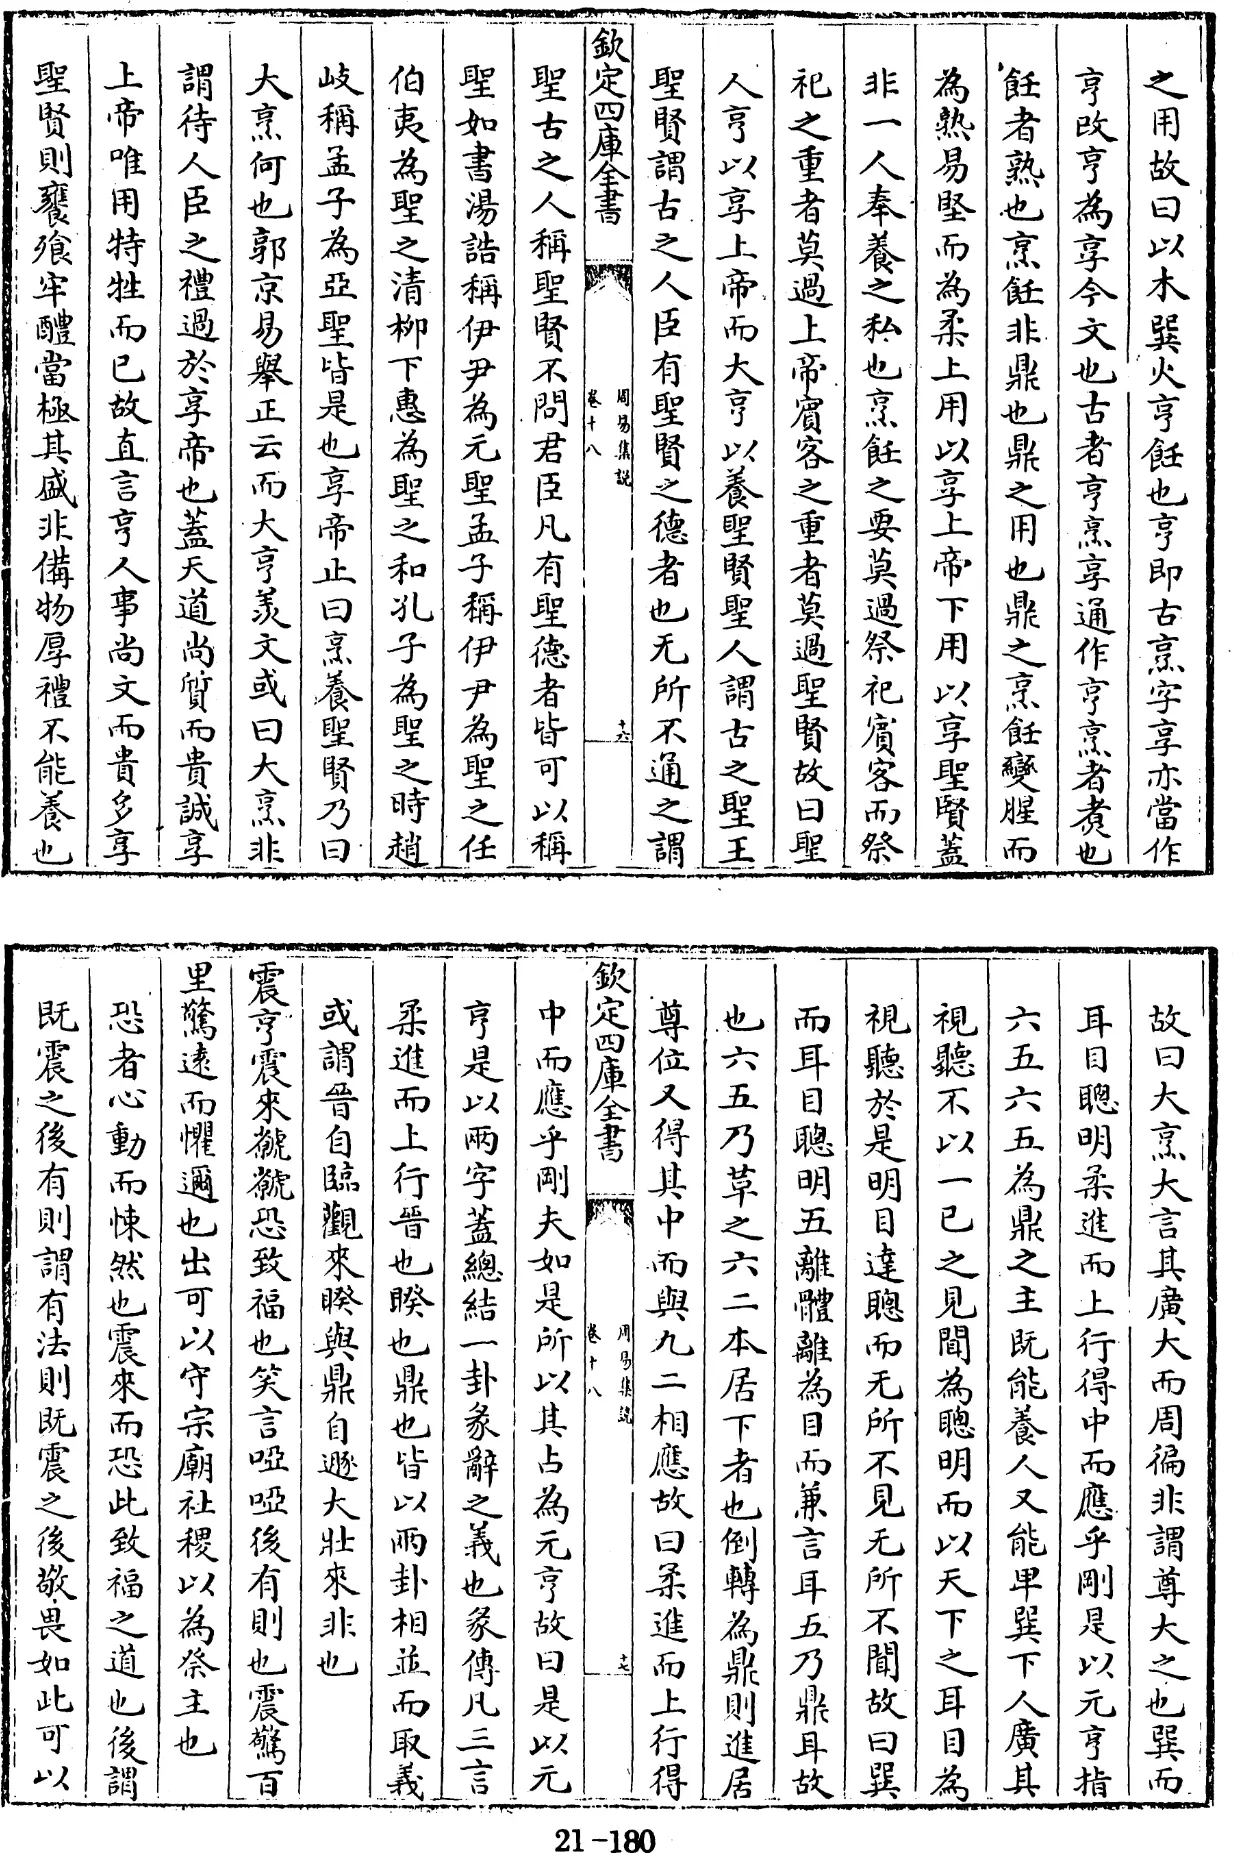 之用故曰以木巽火亨飪也亨即古烹字享亦當作
亨改亨為享今文也古者亨烹享通作亨烹者煑也
飪者熟也烹飪非鼎也鼎之用也鼎之烹飪變腥而
為熟易堅而為柔上用以享上帝下用以享聖賢蓋
非一人奉養之私也烹飪之要莫過祭祀賓客而祭
祀之重者莫過上帝賓客之重者莫過聖賢故曰聖
人亨以享上帝而大亨以養聖賢聖人謂古之聖王
聖賢謂古之人臣有聖賢之德者也无所不通之謂
欽定四庫全書
周易集說
卷十八
十六
聖古之人稱聖賢不問君臣凡有聖德者皆可以稱
聖如書湯誥稱伊尹為元聖孟子稱伊尹為聖之任
伯夷為聖之清栁下惠為聖之和孔子為聖之時趙
岐稱孟子為亞聖皆是也享帝止曰烹養聖賢乃曰
大烹何也郭京易舉正云而大亨羡文或曰大烹非
謂待人臣之禮過於享帝也蓋天道尚質而貴誠享
上帝唯用特牲而已故直言亨人事尚文而貴多享
聖賢則饔飧牢醴當極其盛非備物厚禮不能養也
故曰大烹大言其廣大而周徧非謂尊大之也巽而
耳目聰明柔進而上行得中而應乎剛是以元亨指
六五六五為鼎之主既能養人又能卑巽下人廣其
視聽不以一已之見聞為聰明而以天下之耳目為
視聽於是明目達聰而无所不見无所不聞故曰巽
而耳目聰明五離體離為目而兼言耳五乃鼎耳故
也六五乃革之六二本居下者也倒轉為鼎則進居
尊位又得其中而與九二相應故曰柔進而上行得
欽定四庫全書
周易集說
卷十八
十七
中而應乎剛夫如是所以其占為元亨故曰是以元
亨是以兩字蓋總結一卦彖辭之義也彖傳凡三言
柔進而上行晉也睽也鼎也皆以兩卦相並而取義
或謂晉自臨觀來睽與鼎自遯大壯來非也
震亨震來虩虩恐致福也笑言啞啞後有則也震驚百
里驚遠而懼邇也出可以守宗廟社稷以為祭主也
恐者心動而悚然也震來而恐此致福之道也後謂
既震之後有則謂有法則既震之後敬畏如此可以
21-180